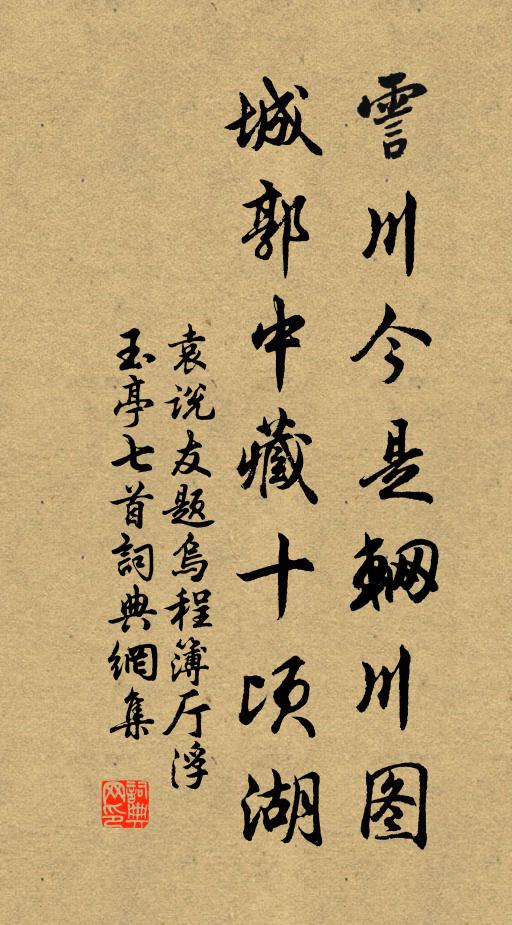 霅川今是輞川图
城郭中藏十顷湖
袁说友题乌程簿厅浮
玉亭七首詞典網集
詞典网印